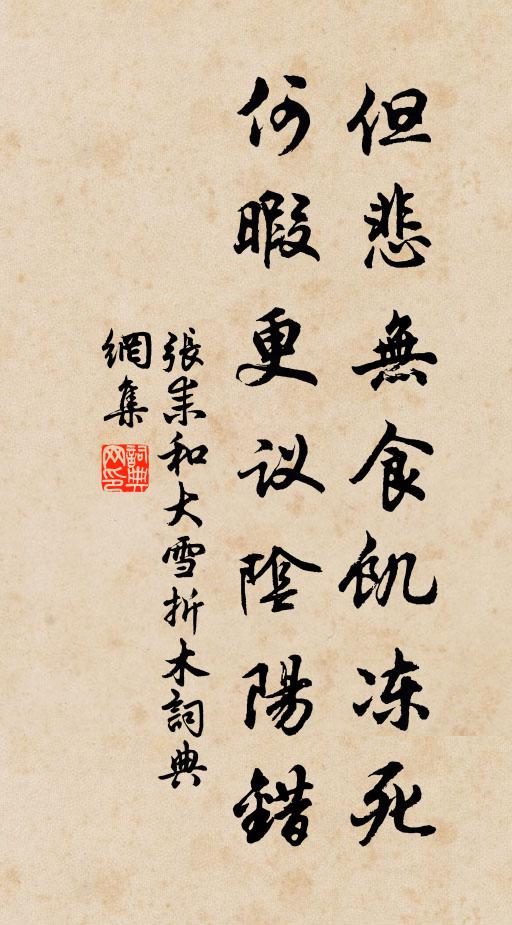 但悲無食飢凍死
何暇更议陰陽錯
張耒和大雪折木詞典
網集
詞典
网印